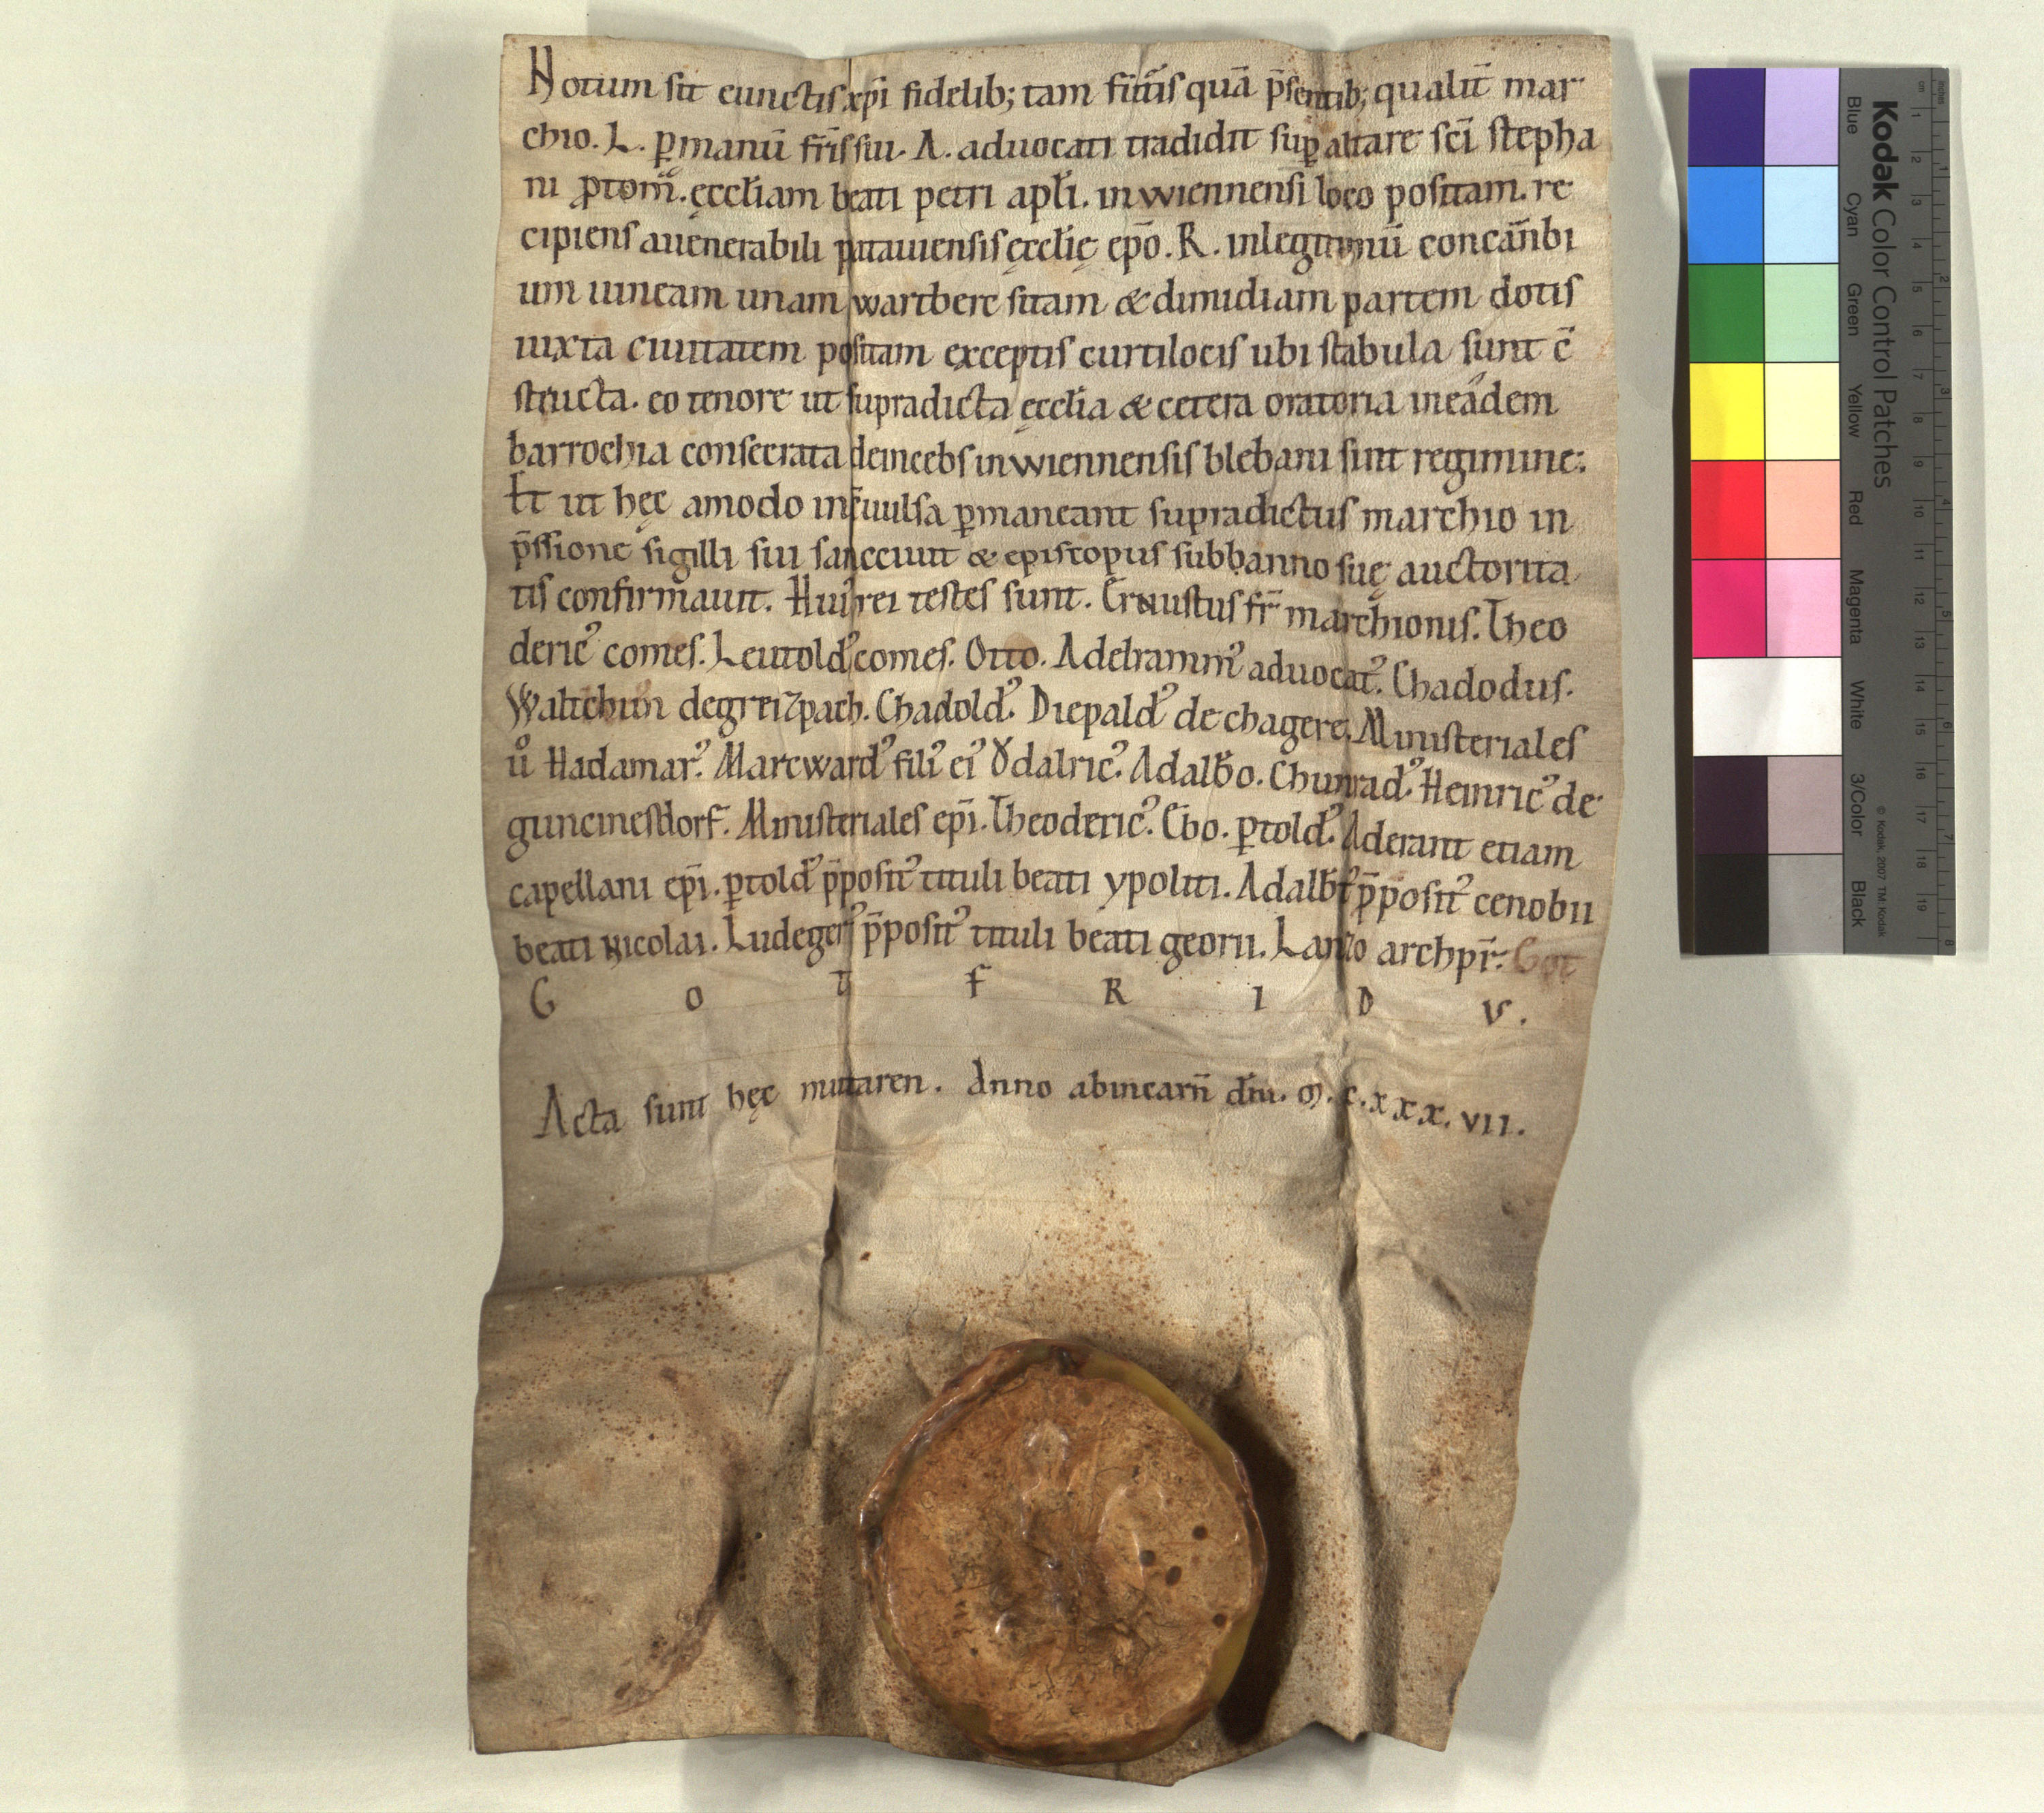 Notum sit cunctis xp̄i fidelib; tam fut̄is quā p̄sentib; qualit̄ mar
chio. L. ꝑmanū fr̄is sui. A. aduocati tradidit suꝑ altare sc̄i stepha
ni ꝓtom̄. ęccl̄iam beati petri apl̄i. in wiennensi loco positam. re
cipiens a uenerabili patauiensis ęccl̄ię ep̄o. R. in legitimū concābi
um uineam unam wartberc sitam & dimidiam partem dotis
iuxta ciuitatem positam exceptis curtilocis ubi stabula sunt c̄
structa. eo tenore ut supradicta ęccl̄ia & cetera oratoria in eādem
barrochia consecrata deincebs in wiennensis blebani sint regimine:
Et ut hęc amodo inc̄uulsa ꝑmaneant supradictus marchio in
p̄ssione sigilli sui sanccuit & episcopus sub banno suę auctorita
tis confirmauit. Hui᾽ rei testes sunt. Ernustus fr̄ marchionis. Theo
deric᾽ comes. Leutold᾽ comes. Otto. Adelramm᾽ aduocat᾽. Chadodus.
Waltchun de greizpach. Chadold᾽. Diepald᾽ de chagere. Ministeriales
uͦ Hadamar᾽. Marcward᾽ fili᾽ ei᾽ Ǒdalric᾽. Adalƀo. Chunrad᾽. Heinric᾽ de
guncinesdorf. Ministeriales ep̄i. Theoderic᾽. Ebo. ꝑtold᾽. Aderant etiam
capellani ep̄i. ꝑtold᾽ p̄posit᾽ tituli beati ypoliti. Adalƀt᾽ p̄posit᾽ cenobii
beati Nicolai. Ludeger᾽ p̄posit᾽ tituli beati georii. Lanzo archpr̄. Got
G O T F R I D V.
Acta sunt hęc mutaren. Anno ab incarn̄ dn̄i. M. C. XXX. VII.
Kodak Color Control Patches
© Kodak, 2007 TM: Kodak
Blue Cyan Green Yellow Red Magenta White 3/Color Black
cm 1 2 3 4 5 6 7 8 9 10 11 12 13 14 15 16 17 18 19
inches 1 2 3 4 5 6 7 8